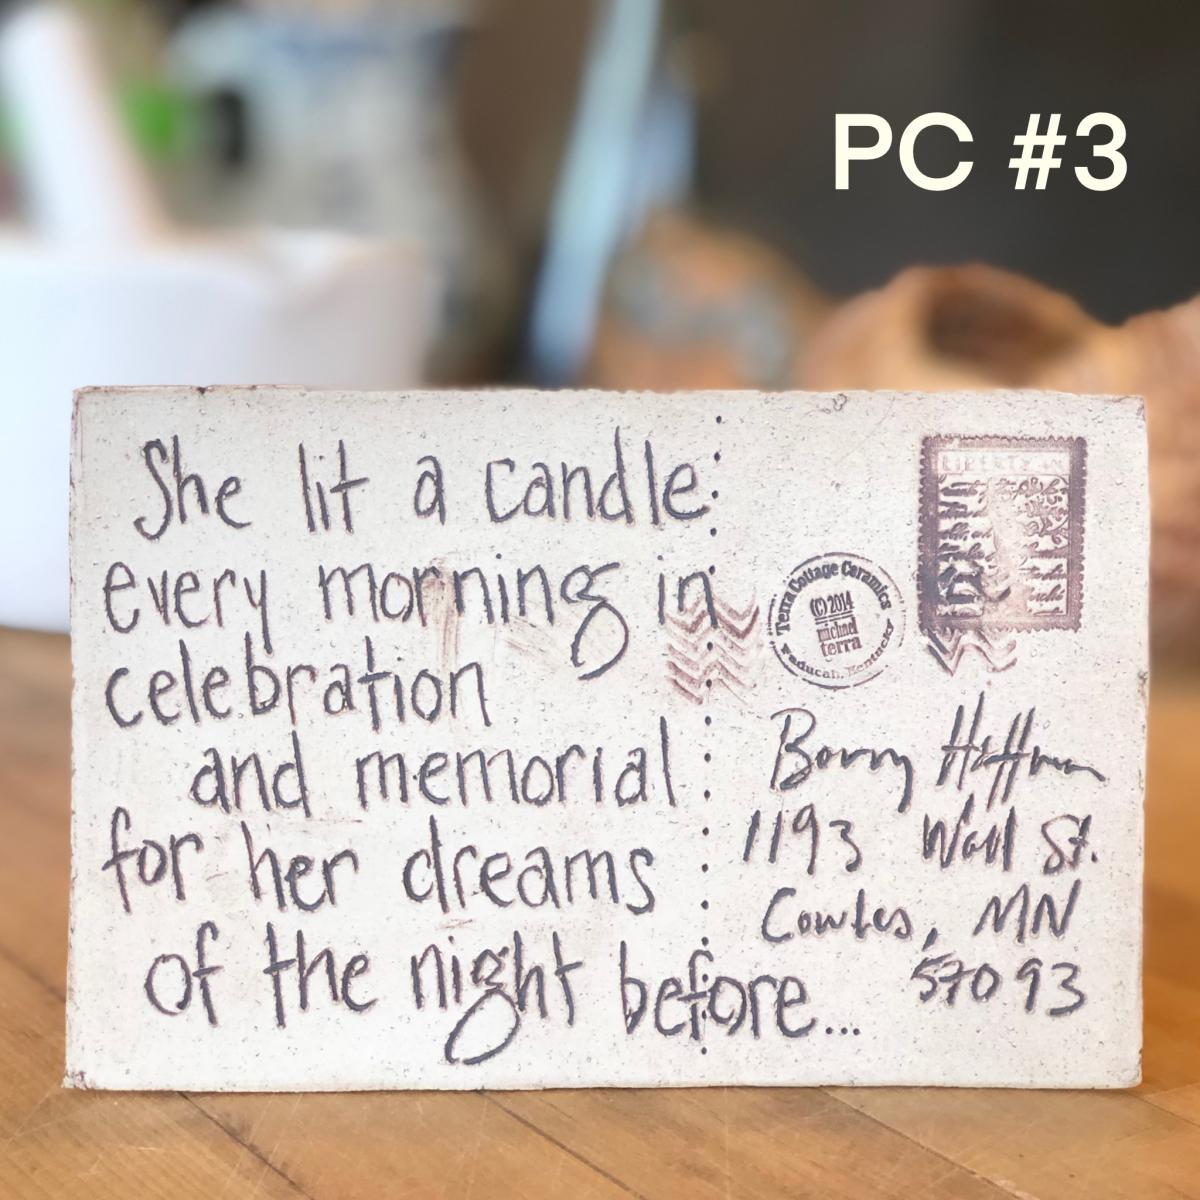 PC #3
She lit a candle
every morning in
celebration
and memorial
for her dreams
of the night before...
Terra Cottage Ceramics
(C) 2014
michael
terra
Paducah, Kentucky
1193 Wall St.
Cowles, MN
57093